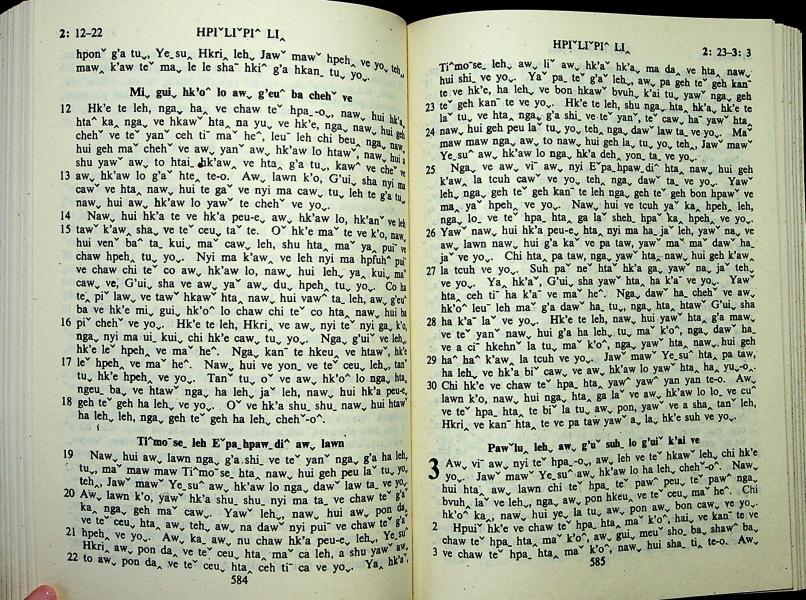 2: 12–22
HPIˇLIˇPIˆ LI‸
hponˇ g'a tu˯, Ye_su‸ Hkri‸ leh˯ Jaw˯ mawˇ hpeh‸ ve yo˯ teh˯
maw‸ k'aw teˇ ma˯ le le shaˉ hkiˆ g'a hkan_ tu˯ yo˯.
Mi‸ gui˯ hk'oˆ lo aw˯ g'euˆ ba chehˇ ve
12 Hk'e te leh, nga˯ ha‸ ve chaw teˇ hpa_-o˯, naw˯ hui hk'a˯
htaˆ ka‸ nga˯ ve hkawˇ hta‸ na yu˯ ve hk'e, nga˯ naw˯ hui geh
chehˇ ve teˇ yanˇ ceh tiˉ maˇ heˆ, leuˉ leh chi beu˯ nga˯ naw˯
hui geh maˇ chehˇ ve aw˯ yanˇ aw˯ hk'aw lo htawˇ, naw˯ hui
shu yaw˯ aw˯ to htai˯ hk'aw˯ ve hta‸ g'a tu˯, kawˉ ve cheˇ ve
13 aw˯ hk'aw lo g'aˆ hte_ te-o. Aw˯ lawn k'o, G'ui˯ sha nyi ma
cawˇ ve hta‸ naw˯ hui te gaˇ ve nyi ma caw˯ tu˯ leh te g'a tu˯
naw˯ hui aw˯ hk'aw lo yawˇ te chehˇ ve yo˯.
14 Naw˯ hui hk'a te ve hk'a peu-e˯ aw˯ hk'aw lo, hk'anˇ ve leh
15 tawˇ k'aw‸ sha˯ ve teˇ ceu˯ taˇ te. Oˇ hk'e maˇ te ve k'o, naw˯
hui venˇ baˆ ta_ kui˯ maˇ caw˯ leh, shu hta‸ maˇ ya‸ puiˉ ve
chaw hpeh‸ tu˯ yo˯. Nyi ma k'aw‸ ve leh nyi ma hpfuhˆ pui
ve chaw chi teˇ co aw˯ hk'aw lo, naw˯ hui leh˯ ya‸ kui˯ maˇ
caw˯ ve, G'ui˯ sha ve aw˯ yaˇ aw˯ du˯ hpeh‸ tu˯ yo˯. Co ha
te‸ piˇ law˯ ve tawˇ hkawˇ hta‸ naw˯ hui vawˆ ta_ leh, aw˯ g'euˆ
ba ve hk'e mi‸ gui˯ hk'oˆ lo chaw chi teˇ co hta‸ naw˯ hui ba
16 piˇ chehˇ ve yo˯. Hk'e te leh, Hkri‸ ve aw˯ nyi teˇ nyi ga‸ k'o,
nga˯ nyi ma ui_ kui˯ chi hk'e caw˯ tu˯ yo˯. Nga˯ g'uiˇ ve leh˯
hk'e leˇ hpeh‸ ve maˇ heˆ. Nga˯ kanˉ te hkeu˯ ve htawˇ, hk'e
17 leˇ hpeh‸ ve maˇ heˆ. Naw˯ hui ve yon_ ve teˇ ceu˯ leh˯, tanˇ
tu˯ hk'e hpeh‸ ve yo˯. Tanˇ tu˯ oˇ ve aw˯ hk'oˆ lo nga˯ hta‸
ngeu_ ba˯ ve htawˇ nga˯ ha leh˯ jaˇ leh, naw˯ hui hk'a peu-e˯
18 geh teˇ geh ha leh˯ ve yo˯. Oˇ ve hk'a shu_ shu_ naw˯ hui htawˇ
ha leh˯ leh, nga˯ geh teˇ geh ha leh˯ chehˇ-oˆ.
Tiˆmoˉse_ leh˯ Eˇpa_hpaw_diˆ aw˯ lawn
19 Naw˯ hui aw˯ lawn nga˯ g'a_shi_ ve teˇ yanˇ nga˯ g'a ha leh˯
tu˯, maˇ maw maw Tiˆmoˉse_ hta‸ naw˯ hui geh peu laˇ tu˯ yo˯
teh˯ Jaw˯ mawˇ Ye_suˆ aw˯ hk'aw lo nga˯ dawˇ law ta_ ve yo˯.
20 Aw˯ lawn k'o, yawˇ hk'a shu_ shu_ nyi ma ta_ ve chaw teˇ g'aˇ
ka‸ nga˯ geh maˇ caw˯. Yawˇ leh˯ naw˯ hui aw˯ pon da˯
ve teˇ ceu˯ hta‸ aw˯ teh˯ aw˯ na dawˇ nyi puiˉ ve chaw teˇ g'aˇ
21 hpeh‸ ve yo˯. Aw˯ ka‸ aw˯ nu chaw hk'a peu-e˯ leh˯ Ye_su‸
Hkri‸ aw˯ pon da˯ ve teˇ ceu˯ hta‸ maˇ ca leh, a shu yawˇ aw˯
22 to aw˯ pon da˯ ve teˇ ceu˯ hta‸ ceh tiˉ ca ve yo˯. Ya‸ hk'aˆ,
584
HPIˇLIˇPIˆ LI‸
2: 23–3: 3
Tiˆmoˉse_ leh˯ aw˯ liˇ aw˯ hk'aˇ hk'a˯ ma da‸ ve hta‸ naw˯
hui shi_ ve yo˯. Yaˇ pa_ teˇ g'aˇ leh˯ aw˯ pa geh teˇ geh kanˉ
te ve hk'e, ha leh˯ ve bon hkawˇ bvuh˯ k'ai tu˯ yawˇ nga˯ geh
23 teˇ geh kanˉ te ve yo˯. Hk'e te leh, shu nga˯ hta‸ hk'a˯ hk'e te
laˇ tu˯ ve hta‸ nga˯ g'a shi_ ve teˇ yanˇ, teˇ caw˯ haˇ yawˇ hta‸
24 naw˯ hui geh peu la tu˯ yo˯ teh˯ nga˯ dawˇ law ta_ ve yo˯. Maˇ
maw maw nga˯ aw˯ to naw˯ hui geh la˯ tu˯ yo˯ teh˯ Jaw˯ mawˇ
Ye_suˆ aw˯ hk'aw lo nga˯ hk'a deh˯ yon_ ta_ ve yo˯.
25 Nga˯ ve aw˯ viˉ aw˯ nyi Eˇpa_hpaw_diˆ hta‸ naw˯ hui geh
k'aw‸ la tcuh caw˯ ve yo˯ teh˯ nga˯ dawˇ ta_ ve yo˯. Yawˇ
leh˯ nga˯ geh teˇ geh kanˉ te leh nga˯ geh teˇ geh bon hpawˇ ve
ma‸ yaˇ hpeh‸ ve yo˯. Naw˯ hui ve tcuh yaˇ ka‸ hpeh‸ leh,
nga˯ lo_ ve teˇ hpa_ hta‸ ga la˯ sheh_ hpaˇ ka‸ hpeh‸ ve yo˯.
26 Yawˇ naw˯ hui hk'a peu-e˯ hta‸ nyi ma ha_ jaˇ leh, yawˇ na˯ ve
aw˯ lawn naw˯ hui g'a kaˇ ve pa taw, yawˇ maˇ maˇ dawˇ ha_
jaˇ ve yo˯. Chi hta‸ pa taw, nga˯ yawˇ hta‸ naw˯ hui geh k'aw‸
27 la tcuh ve yo˯. Suh paˇ neˇ htaˇ hk'a ga‸ yawˇ na˯ jaˇ teh˯
ve yo˯. Ya‸ hk'aˇ, G'ui˯ sha yawˇ hta‸ ha k'aˉ ve yo˯. Yawˇ
hta‸ ceh tiˉ ha k'aˉ ve maˇ heˆ. Nga˯ dawˇ ha_ chehˇ ve aw˯
hk'oˆ leuˉ leh maˇ g'a dawˇ ha_ tu˯, nga˯ hta‸ htawˇ G'ui˯ sha
28 ha k'aˉ laˇ ve yo˯. Hk'e te leh, naw˯ hui yawˇ hta‸ g'a maw˯
ve teˇ yanˇ naw˯ hui g'a ha leh˯ tu˯ maˇ k'oˆ, nga˯ dawˇ ha_
ve a ciˉ hkehnˇ la tu˯ maˇ k'oˆ, nga˯ yawˇ hta‸ naw˯ hui geh
29 haˆ haˆ k'aw‸ la tcuh ve yo˯. Jaw˯ mawˇ Ye_suˆ hta‸ pa taw,
ha leh˯ ve hk'a biˇ caw˯ ve aw˯ hk'aw lo yawˇ hta‸ ha‸ yu˯-o.
30 Chi hk'e ve chaw teˇ hpa_ hta‸ yawˇ yawˇ yan yan te-o. Aw˯
lawn k'o, naw˯ hui nga˯ hta‸ ga laˇ ve aw˯ hk'aw lo lo_ ve cuˇ
ve teˇ hpa_ hta‸ te biˇ la tu˯ aw˯ pon, yawˇ ve a sha˯ tanˇ leh,
Hkri‸ ve kanˉ hta‸ te ve pa taw yawˇ a_ la_ hk'e suh ve yo˯.
Pawˇlu˯ leh˯ aw˯ g'uˇ suh_ lo g'uiˆ k'ai ve
3 Aw˯ viˉ aw˯ nyi teˇ hpa_-o˯, aw˯ leh ve teˇ hkawˇ leh˯ chi hk'e
yo˯. Jaw˯ mawˇ Ye_suˆ aw˯ hk'aw lo ha leh˯ chehˇ-oˆ. Naw˯
hui hta‸ aw˯ lawn chi teˇ hpa_ teˇ pawˆ peu˯ teˇ pawˆ nga˯
bvuh˯ laˇ ve leh˯ nga˯ aw˯ pon hkeu˯ ve teˇ ceu˯ maˇ heˆ. Chi
hk'oˆ ka‸ naw˯ hui ye˯ la tu˯ aw˯ pon aw˯ bon caw˯ ve yo˯.
2 Hpuiˇ hk'e ve chaw teˇ hpa_ hta‸ maˇ k'oˆ, hai˯ ve kanˉ te ve
chaw teˇ hpa_ hta‸ maˇ k'oˆ, aw˯ gui˯ meuˇ sho_ ba_ shawˆ ba˯
3 ve chaw teˇ hpa_ hta‸ maˇ k'oˆ, naw˯ hui sha_ ti˯ te-o. Aw˯
585